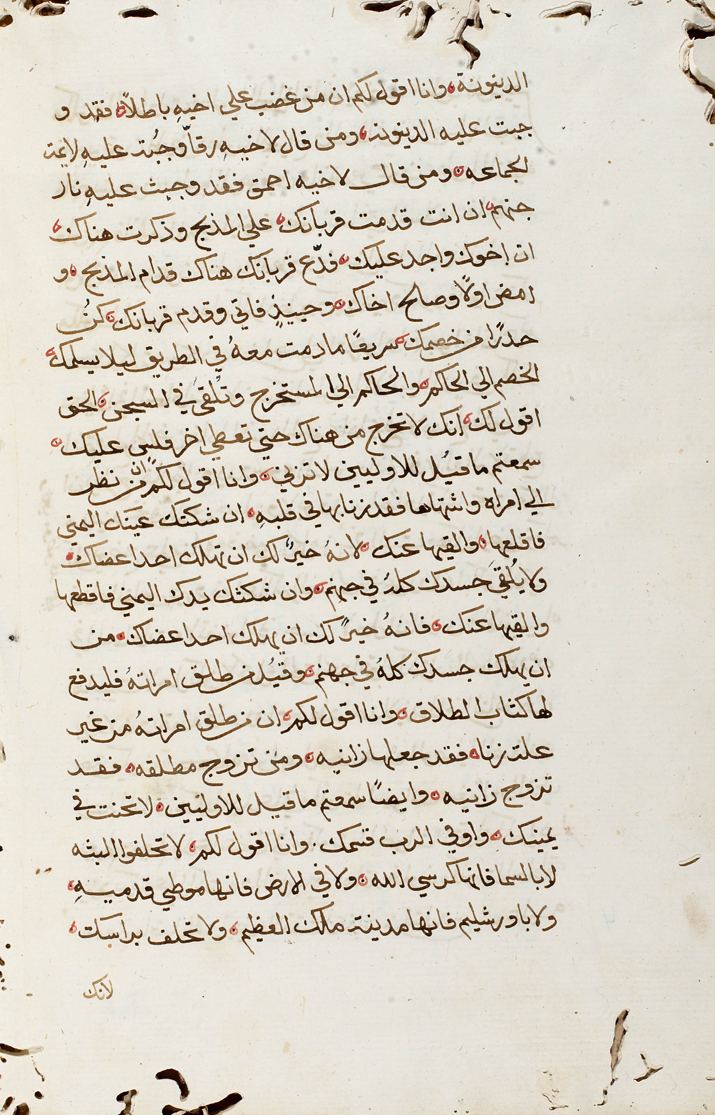 الدينونة وانا اقول لكم ان من غضب علي اخيهِ باطلاً فقد و
جبت عليه الدينونه ومن قال لاخيهِ رقاً وجُبتَ عليهِ لايمة
الجماعه ومن قال لاخيه احمق فقد وجبت عليهِ نار
جنهم ان انت قدمت قربانك علي المذبح وذكرت هناك
ان اخوك واجد عليك فدّع قربانك هناك قدام المذبح و
امض اولاً وصالح اخاك وحينيذٍ فاتي وقدم قربانك كنُ
حدرًا من خصمك سريعًا ما دمت معهُ في الطريق ليلا يسلمك
الخصم الي الحاكم والحاكم الي المستخرج وتلقيَ في السجن الحق
اقول لك انك لا تخرج من هناك حتي تعطي اخر فلس عليك
سمعتم ما قيُل للاوليين لا تزني وانا اقول لكم ان من نظر
الي امراه واشتهاها فقد زنا بها في قلبه ان شكتك عينك اليمني
فاقلعها والقيها عنك لانهُ خيرًٌ لك ان تهلك احد اعضاك
ولا يُلقيَ جسدك كلهُ في جهنم وان شكتك يدك اليمني فاقطعها
والقيها عنك فانهُ خيرًٌ لك ان يهلك احد اعضاك من
ان يهلك جسدك كلهُ في جهنم وقيُل من طلق امراتهُ فليدفع
لها كتاب الطلاق وانا اقول لكم ان من طلق امراتهُ من غير
علت زنا فقد جعلها زانيه ومن تزوج مطلقه فقد
تزوج زانيه وايضًا سمعتم ما قيل للاوليّن لا تحنت في
يمينك واوفي الرب قسمك. وانا اقول لكم لا تحلفوا البثه
لا بالسما فانها كرسي الله ولا في الارض فانها موطي قدميهِ
ولا باورشليم فانها مدينة ملك العظيم ولا تحلف براسك
لانك